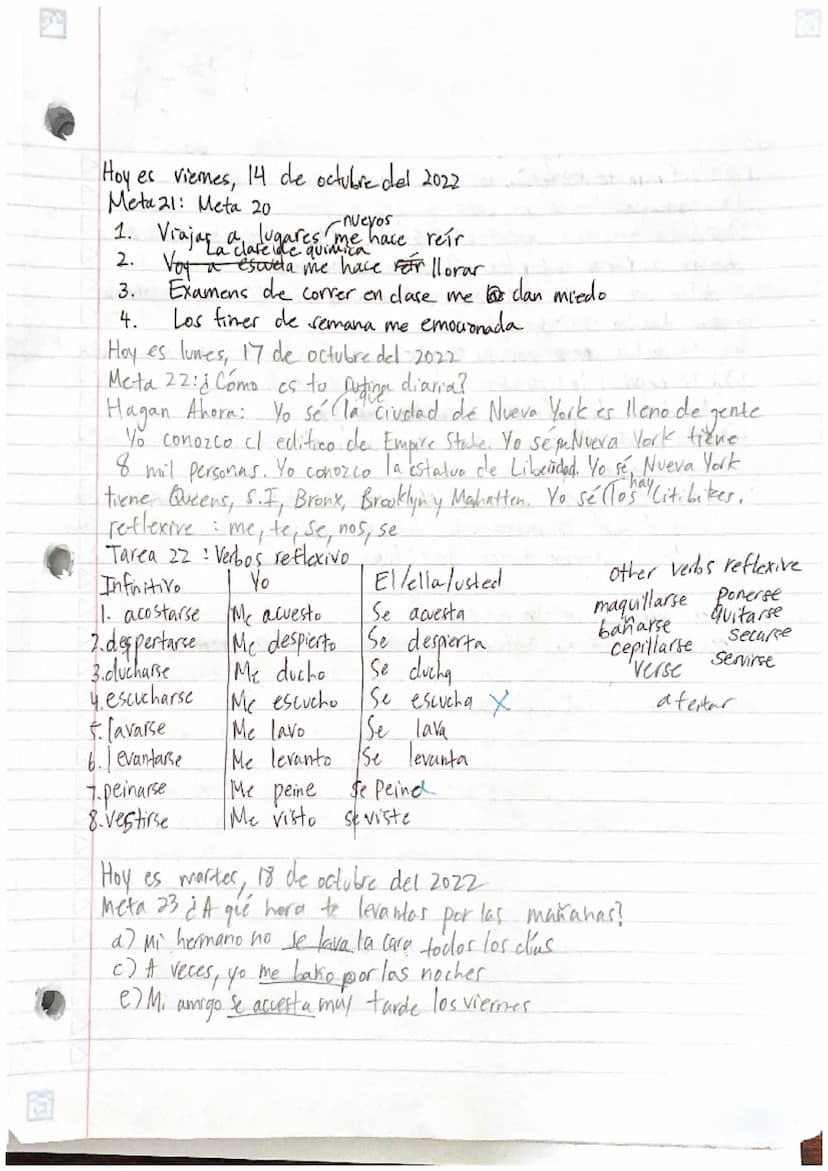 Hoy es viernes, 14 de octubre del 2022
Meta 21: Meta 20
nuevos
1. Viajar a lugares me hace reír
La clase de química
2. Voy a escuela me hace reír llorar
3. Examens de correr en clase me dan miedo
4. Los fines de semana me emocionada
Hoy es lunes, 17 de octubre del 2022
Meta 22: ¿Cómo es tu rutina diaria?
que
Hagan Ahora: Yo sé la ciudad de Nueva York es lleno de gente
Yo conozco el edifico de Empire State. Yo sé que Nueva York tiene
8 mil personas. Yo conozco la estatua de Libertdad. Yo sé, Nueva York
hay
tiene Queens, S.I, Bronx, Brooklyn y Mahatten. Yo sé los Citibikes.
reflexive : me, te, se, nos, se
Tarea 22 : Verbos reflexivo
Infinitivo Yo El/ella/usted
1. acostarse Me acuesto Se acuesta
2. despertarse Me despierto Se despierta
3. ducharse Me ducho Se ducha
4. escucharse Me escucho Se escucha X
5. lavarse Me lavo Se lava
6. levantarse Me levanto Se levanta
7. peinarse Me peine se peina
8. vestirse Me visto se viste
other verbs reflexive
maquillarse ponerse
bañarse quitarse
cepillarse secarse
verse servirse
afeitar
Hoy es martes, 18 de octubre del 2022
Meta 23 ¿A qué hora te levantas por las mañanas?
a) Mi hermano no se lava la cara todos los días
c) A veces, yo me baño por las noches
e) Mi amigo se acuesta muy tarde los viernes